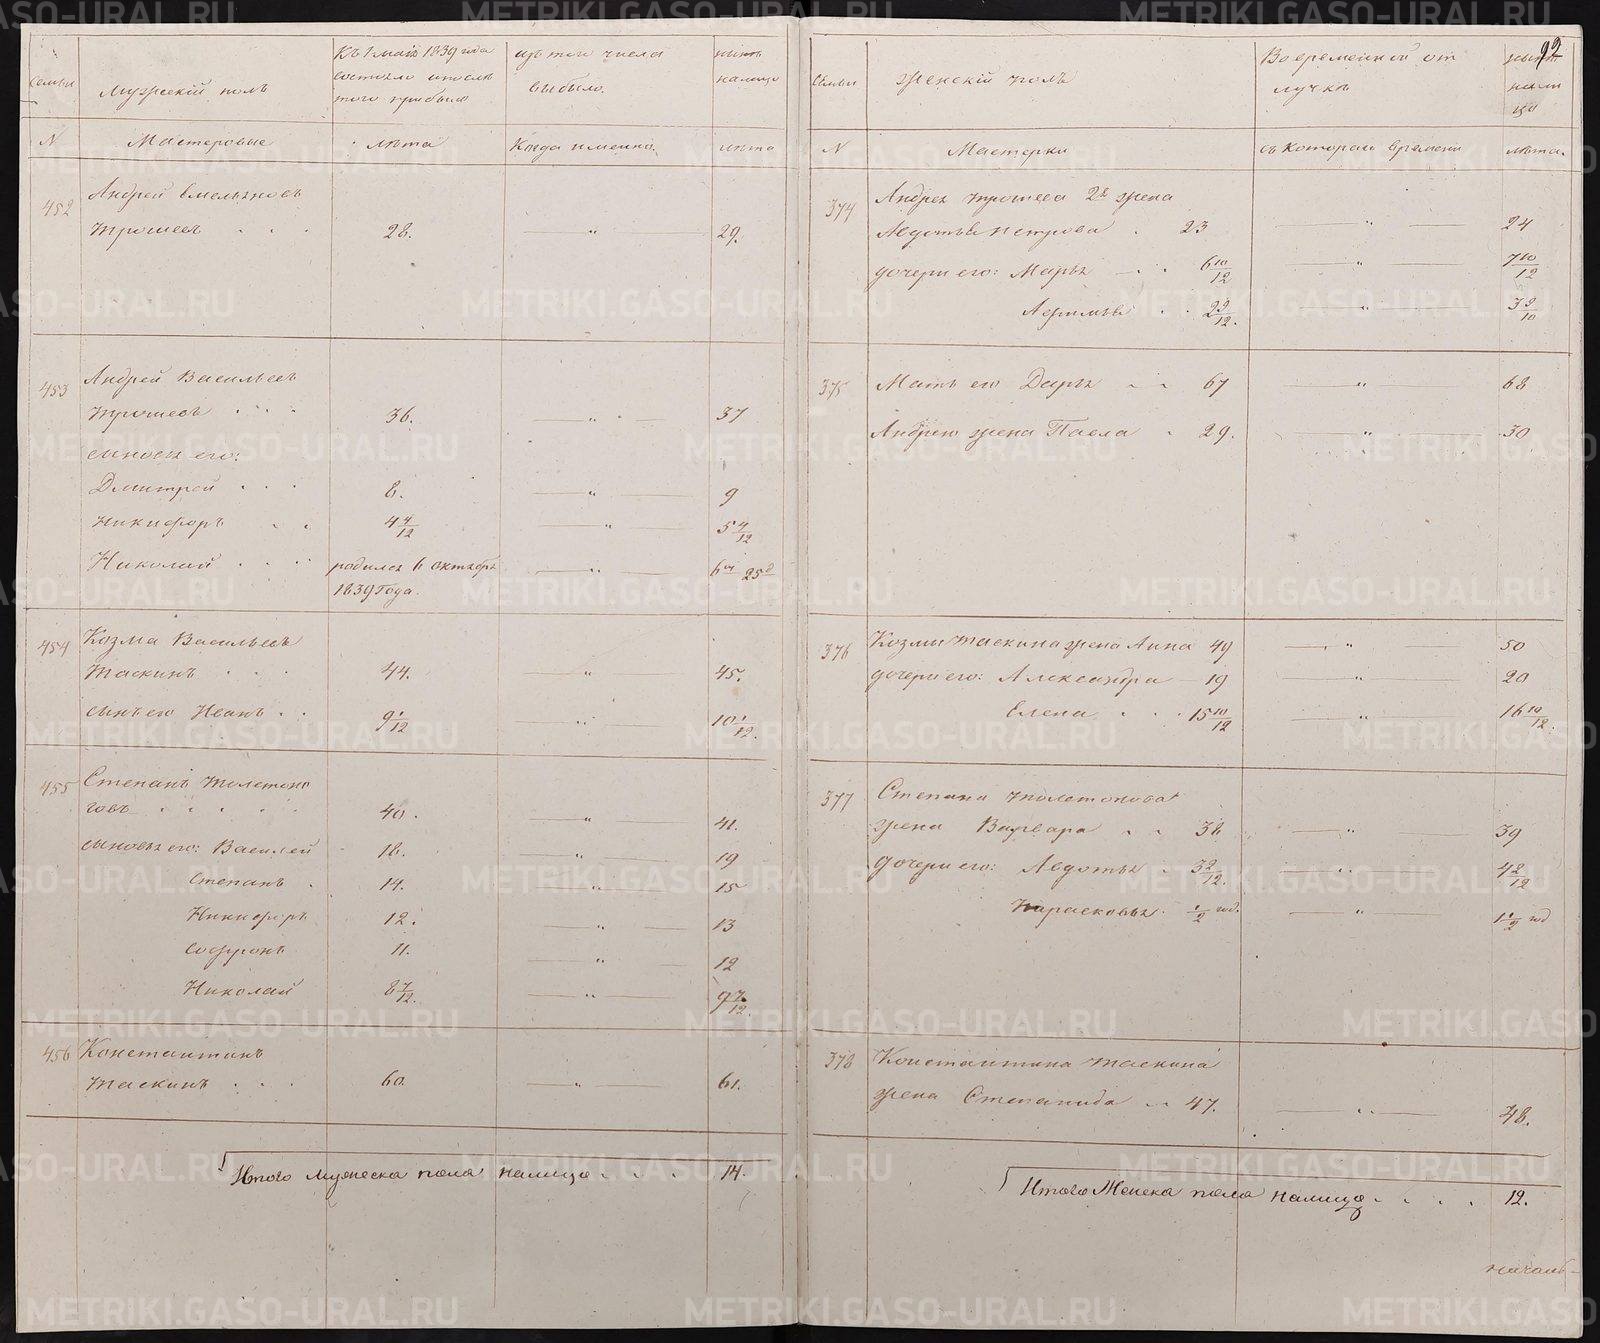 92
Семьи
Мужескій полъ
Къ 1 маія 1839 года
состояло и после
того прибыло
изъ того числа
выбыло.
нынѣ
налицо
N
Мастеровые
лѣта
Куда именно.
лѣта
452
Андрей Емельяновъ
Трошевъ . . . 28. " 29.
453
Андрей Васильевъ
Трошевъ . . . 36. " 37
сыновья его:
Дмитрей . . . 8. " 9
Никифоръ . . 4 4/12 " 5 4/12
Николай . . . родился 6 октября " 6м 25д
1839 года.
454
Козма Васильевъ
Таскинъ . . . 44. " 45.
сынъ его Иванъ . . 9 1/12 " 10 1/12.
455
Степанъ Толстоно
говъ . . . . . 40. " 41.
сыновья его: Василей 18. " 19
Степанъ . 14. " 15
Никифоръ 12. " 13
Софронъ 11. " 12
Николай 8 7/12. " 9 7/12.
456
Константинъ
Таскинъ . . . 60. " 61.
Итого мужеска пола налицо . . . . 14.
Семьи
Женскій полъ
Во временной от
лучкѣ
нынѣ
нали
цо
N
Мастерки
съ котораго времени
лѣта.
374
Андрея Трошева 2я жена
Авдотья Петрова . 23 " 24
дочери его: Марья . . 6 10/12 " 7 10/12
Афимья . . 2 9/12. " 3 9/10
375
Мать его Дарья . . 67 " 68
Андрею жена Павла . 29. " 30
376
Козмы Таскина жена Анна 49 " 50
дочери его: Александра 19 " 20
Елена . . . 15 10/12 " 16 10/12.
377
Степана Толстонова
жена Варвара . . 38 " 39
дочери его: Авдотья . 3 2/12. " 4 2/12
Парасковья . 1/2 год. " 1 1/2 год
378
Константина Таскина
жена Степанида . . 47. " 48.
Итого Женска пола налицо . . . . 12.
METRIKI.GASO-URAL.RU